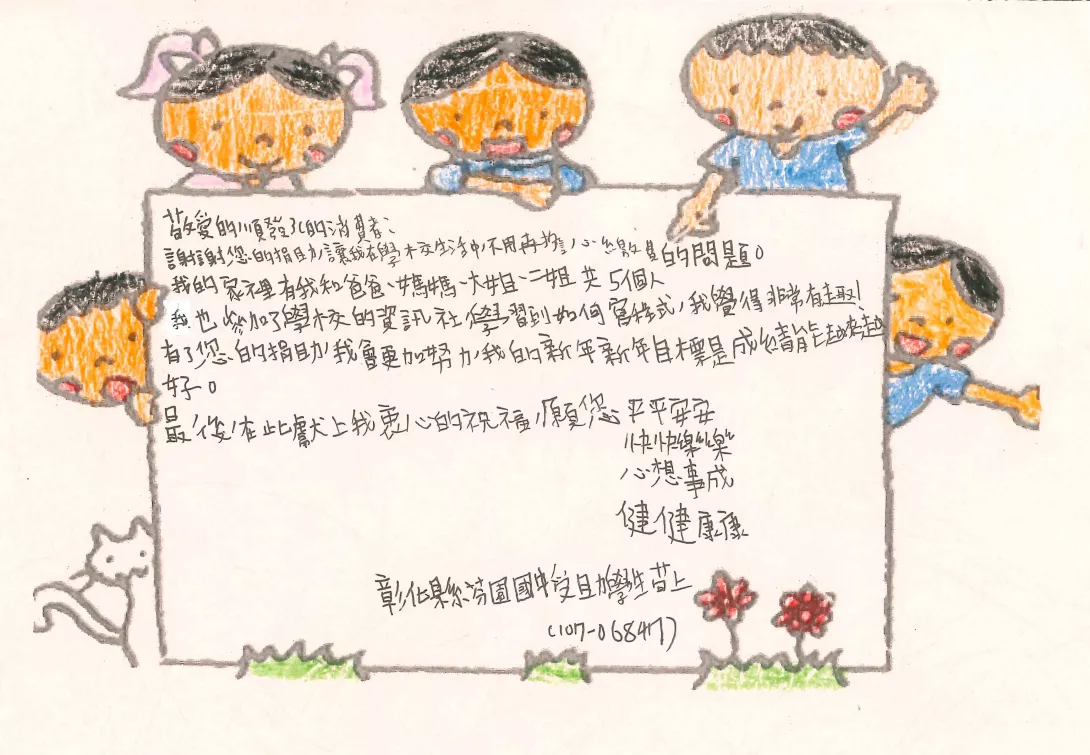 敬愛的順發3C的消費者、
謝謝您的捐助，讓我在學校生活中，不用再擔心繳費的問題。
我的家裡有我和爸爸、媽媽、大姐、二姐共5個人
我也參加了學校的資訊社，學習到如何寫程式，我覺得非常有趣！
有了您的捐助，我會更加努力，我的新年新年目標是成績能越來越
好。
最後，在此獻上我衷心的祝福，願您 平平安安
快快樂樂
心想事成
健健康康
彰化縣芬園國中受助學生 敬上
(107-06847)